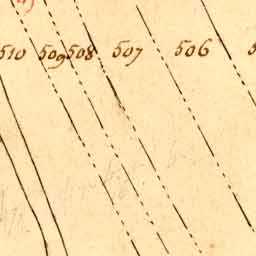 510 509 508 507 506